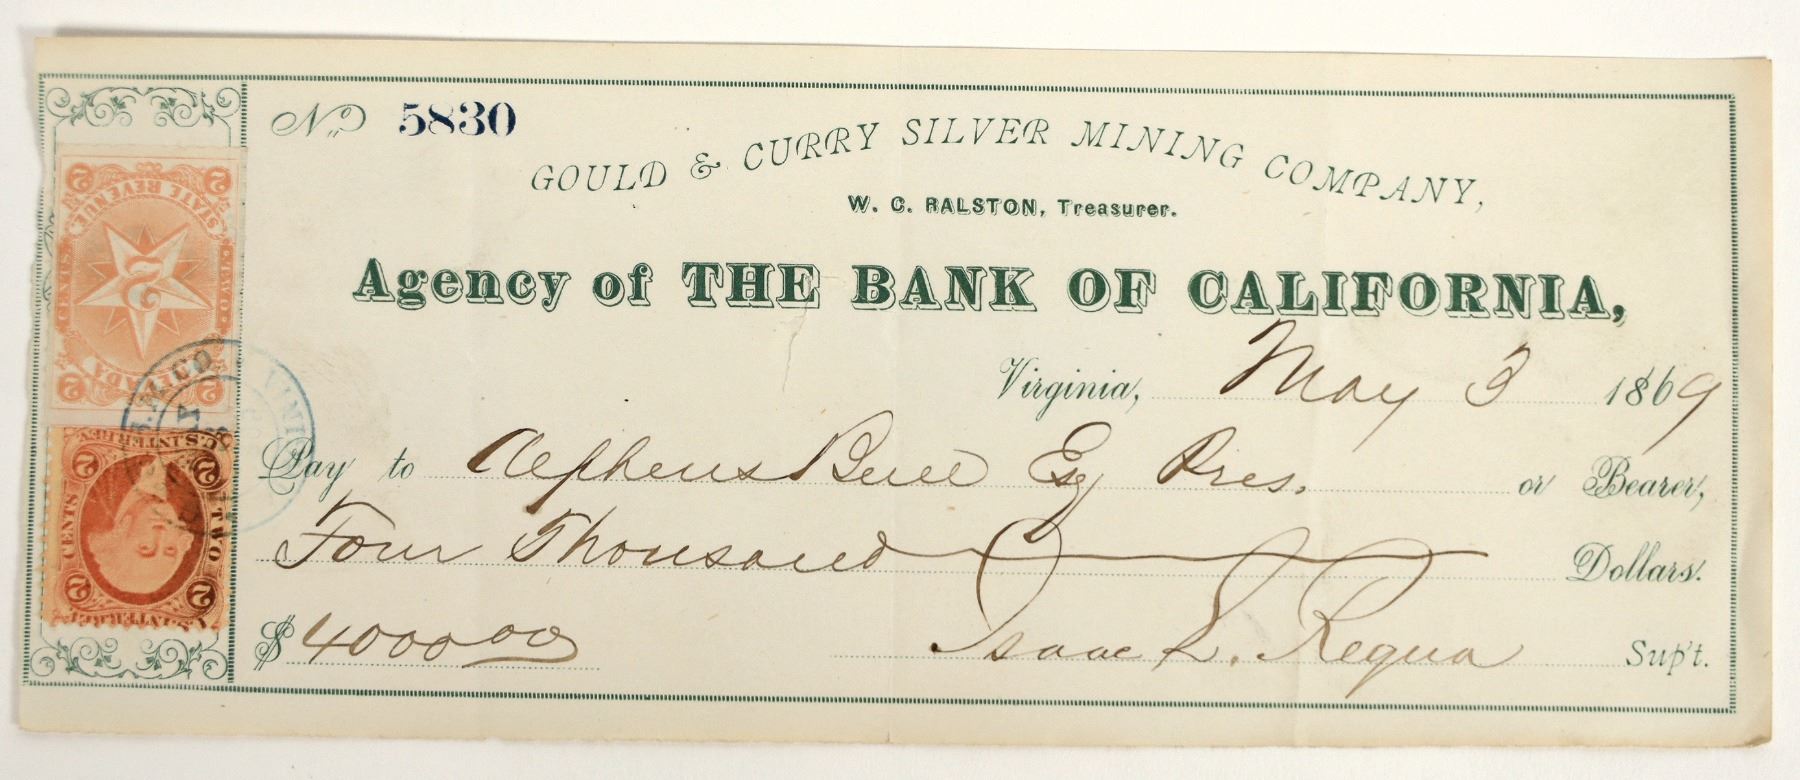 No 5830
GOULD & CURRY SILVER MINING COMPANY,
W. C. RALSTON, Treasurer.
Agency of THE BANK OF CALIFORNIA,
Virginia, May 3 1869
Pay to Alpheus Bull Esq Pres. or Bearer,
Four Thousand Dollars.
$4000 00 Isaac L. Requa Sup't.
2 STATE REVENUE. 2
CENTS. 2 TWO.
2 NEVADA 2
U.S. INTER. REV.
2 CENTS TWO 2
2 2
U.S. INTER. REV.